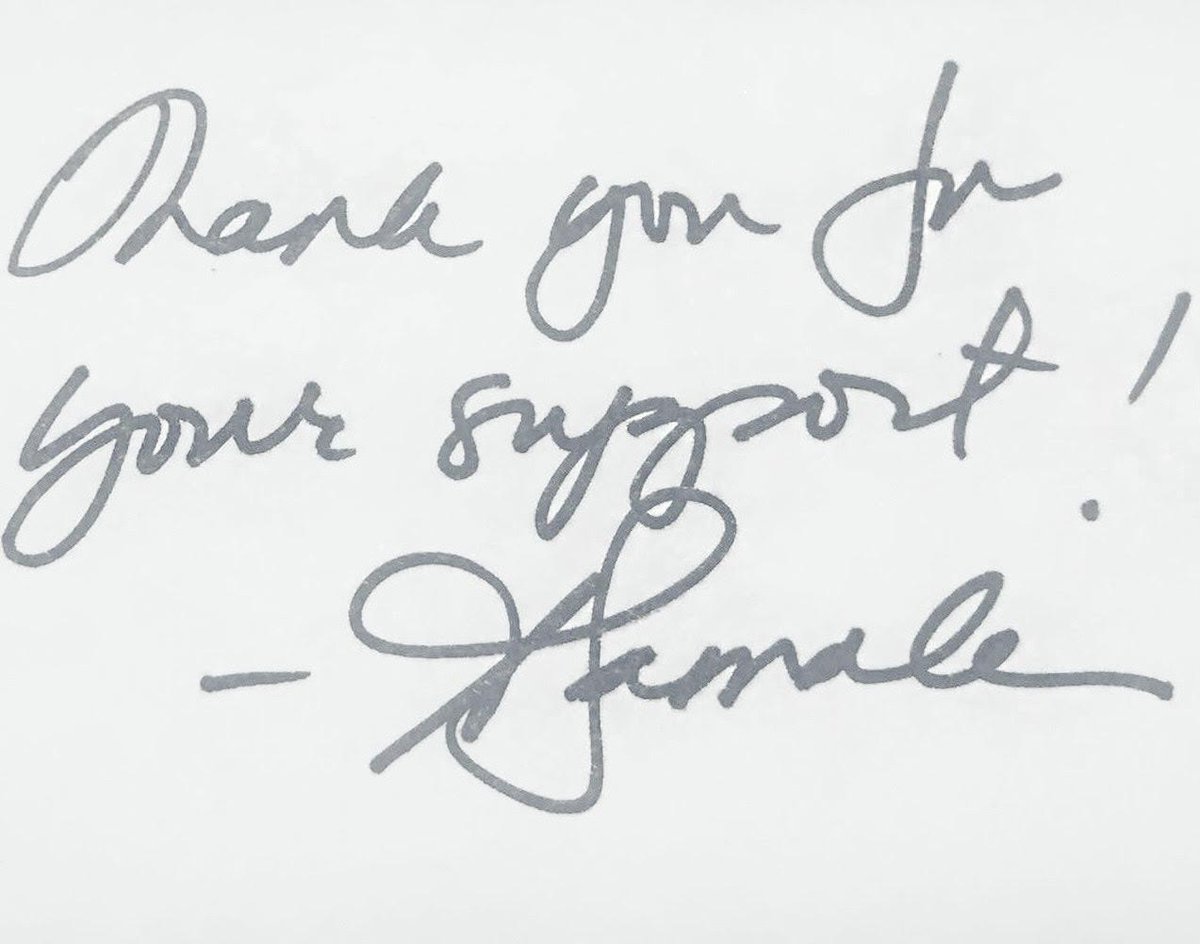 Thank you for
your support!
- Kamala